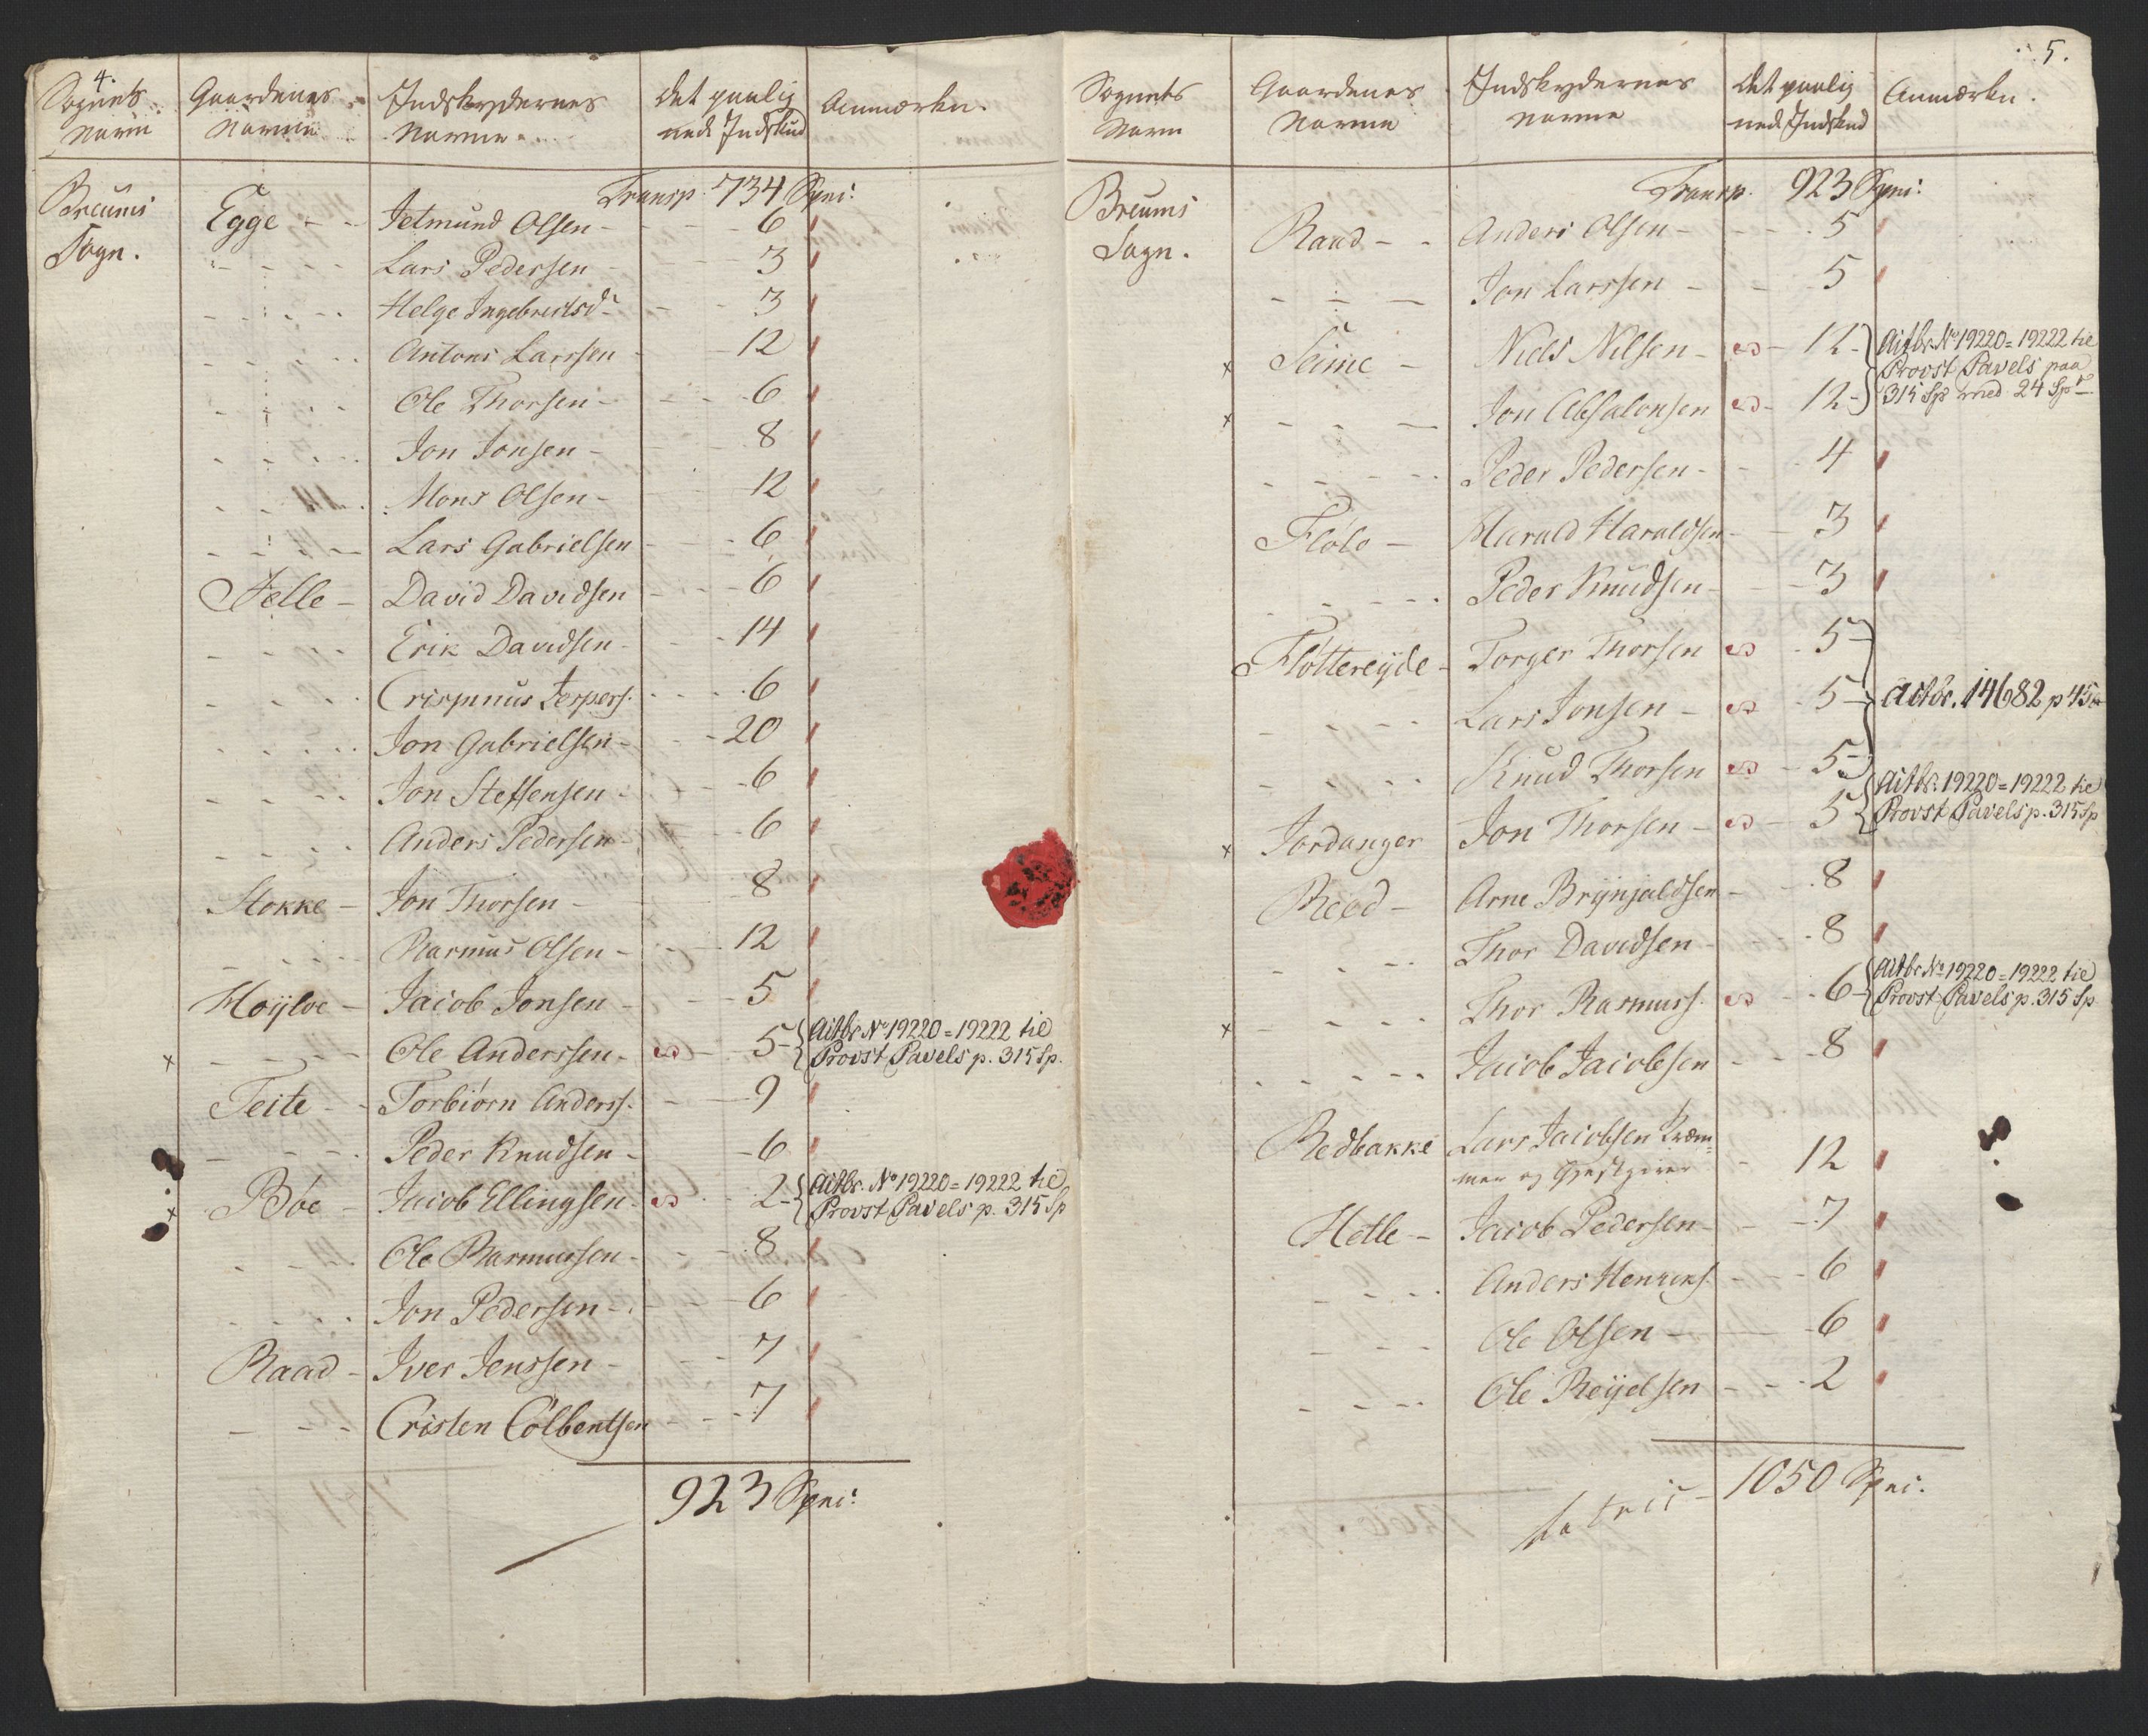 4.
Sognets Navn | Gaardenes Navne | Indskydernes Navne | det paalignede Indskud | Anmærkn.
Transp. 734 Spec:
Breums Sogn. | Egge - - | Jetmund Olsen - | 6
- - - - | Lars Pedersen - | 3
- - - - | Helge Ingebrectsd: | 3
- - - - | Antons Larssen | 12
- - - - | Ole Thorsen - | 6
- - - - | Jon Jonsen - | 8
- - - - | Mons Olsen - | 12
- - - - | Lars Gabrielsen | 6
Felle - | David Davidsen | 6
- - - - | Erik Davidsen - | 14
- - - - | Crispinus Jespers. | 6
- - - - | Jon Gabrielsen - | 20
- - - - | Jon Steffensen - | 6
- - - - | Anders Pedersen - | 6
Stokke - | Jon Thorsen - | 8
- - - - | Rasmus Olsen - | 12
Høyloe - | Jacob Jonsen - | 5
x - - - - | Ole Anderssen - | 5 - { Actbr No 19220 = 19222 til
Provst Pavels p. 315 Sp.
Teite - - | Torbiørn Anderss. | 9
- - - - | Peder Knudsen - | 6
x Bøe - | Jacob Ellingsen - | 2 - { Actbr. No 19220 = 19222 til
Provst Pavels p. 315 Sp
- - - - | Ole Rasmussen - | 8
- - - - | Jon Pedersen - | 6
Raad - | Iver Jenssen - | 7
- - - | Cristen Colbentsen | 7
923 Spec:
5.
Sognets Navn | Gaardenes Navne | Indskydernes Navne | det paalignede Indskud | Anmærkn.
Transp. 923 Spec:
Breums Sogn. | Raad - - | Anders Olsen - | 5
- - - | Jon Larssen - | 5
x Seime - | Niels Nilsen - | 12 - } Actbr. No 19220 = 19222 til
Provst Pavels paa
x - - - | Jon Absalonsen | 12 - } 315 Sp med 24 Sp
- - - - | Peder Pedersen - | 4
Flølo - | Harald Haraldsen - | 3
- - - - | Peder Knudsen - | 3
Fløttereyde - | Torger Thorsen | 5 - }
- - - - | Lars Jonsen - | 5 - } Actbr. 14682 p 45
- - - - | Knud Thorsen | 5 - }
x Jordanger | Jon Thorsen - | 5 { Actbr. 19220 = 19222 til
Provst Pavels p. 315 Sp
Reed - | Arne Brynjaldsen - | 8
- - - - | Thor Davidsen - | 8
x - - - - | Thor Rasmuss. | 6 - { Actbr No 19220 = 19222 til
Provst Pavels p. 315 Sp
- - - - | Jacob Jacobsen | 8
Redbakke | Lars Jacobsen Kræm=
mer og Gjestgiver - | 12
Hetle - | Jacob Pedersen - | 7
- - - - | Anders Henriks. | 6
- - - | Ole Olsen - | 6
- - - - | Ole Reyelsen | 2
1050 Spec: